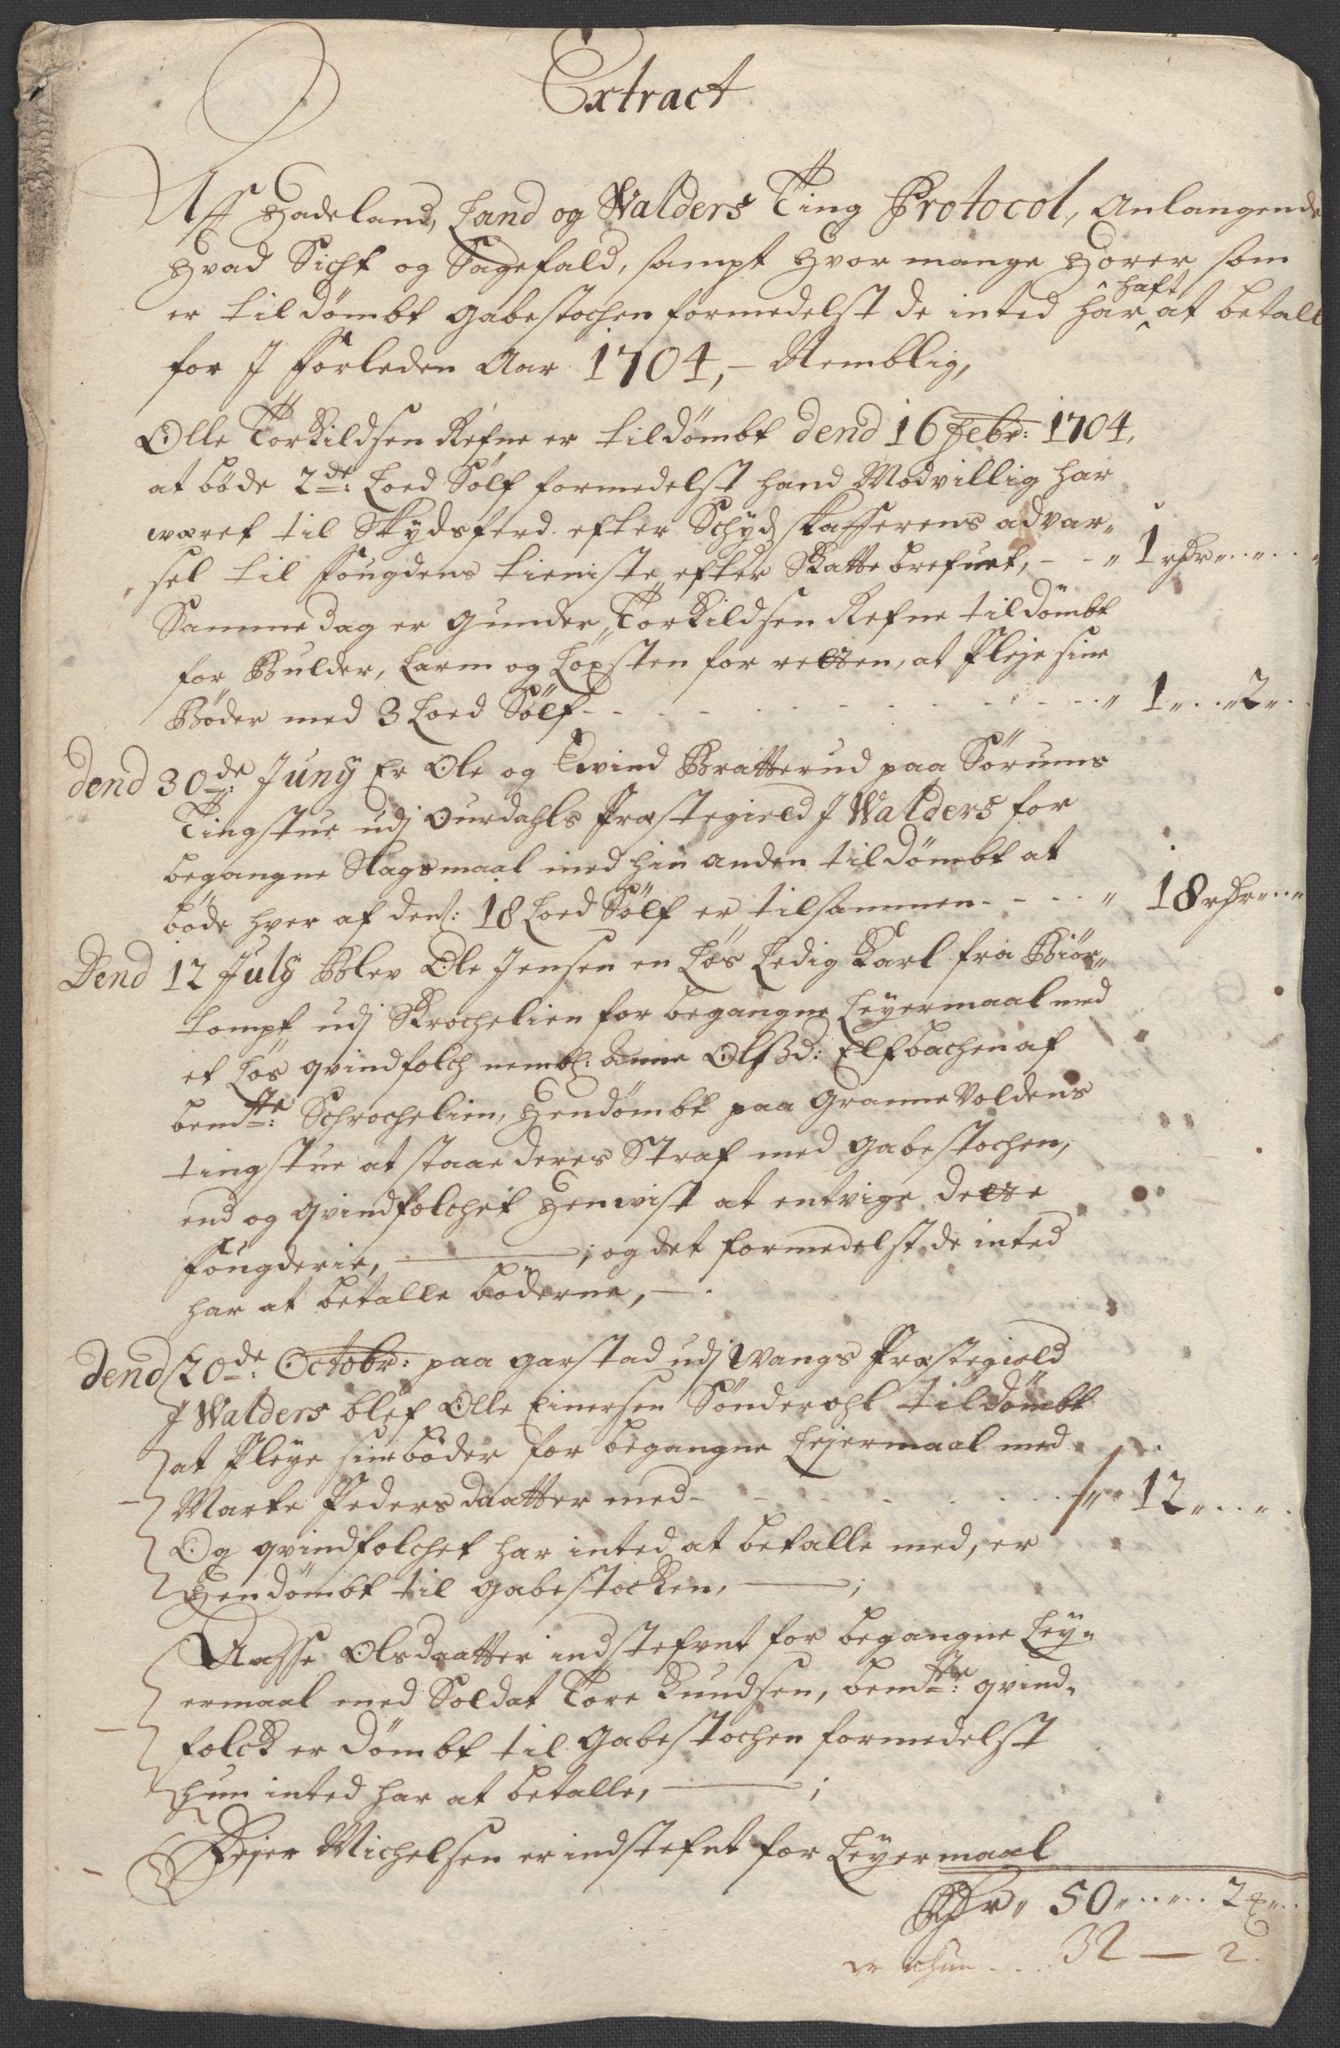 Extract
Aff Hadeland, Land og Walders Ting Protocol, Anlangende
Hvad Sicht og Sagefald, sampt Hvor mange Horer som
er tildømbt gabestochen formedelst de inted har haft at betalle
for J Forleden Aar 1704, – Nemblig,
Olle Torkildsen Refne er tildømbt dend 16 Febr: 1704,
at bøde 2de: Loed Sølf formedelst hand Modvillig har
wæret til Skydsferd efter Schydskafferens advar-
sel til Fougdens tieniste efter Skattebrefuet, - - " 1 rdr " . . " . . "
Samme dag er Gunder Torkildsen Refne tildømbt
for Bulder, Larm og Løgsten for retten, at Pleje sine
Bøder med 3 Loed Sølf - - - - - - - " 1 " . . " 2 " . .
dend 30de: Junij Er Ole og Evind Bratterud paa Sørums
Tingstue udj Ourdahls Præstegield J Walders for
begangne Slagsmaal med hin anden tildømbt at
bøde hver af dem: 18 Loed Sølf er tilsammen - - - " 18 rdr " . . "
Dend 12 July Blev Ole Jensen en Løs Ledig Karl fra Biør-
Lompf udj Skrochelien for begangne Leyermaal med
et Løs qvindfolch nembl: Anne Olsd: Elfbachen af
bemte: Schrochelien, Hendømbt paa GranneVoldens
tingstue at staae deres Straf med gabestochen,
end og qvindfolchet Henvist at entvige dette
fougderie, ; og det formedelst de inted
har at betalle bøderne, – .
dend 20de: Octobr: paa garstad udj Wangs Præstegield
J Walders blef Olle Einersen Sønderohl tildømbt
at Pleye sine bøder for begangne Lejermaal med
Marte Pedersdaatter med - - - - - - " 12 " . . " .
Og qvindfolchet har inted at betalle med, er
Hendømbt til gabestocken, ;
Aasse Olsdaatter indstefnt for begangne Ley-
ermaal med Soldat Tore Knudsen, bemte: qvind-
folck er dømbt til gabestochen formedelst
hun inted har at betalle, ;
Pejer Michelsen er indstefnt for Leyermaal
Rdr " 50 " . . " . . 2 " . .
32 — 2.